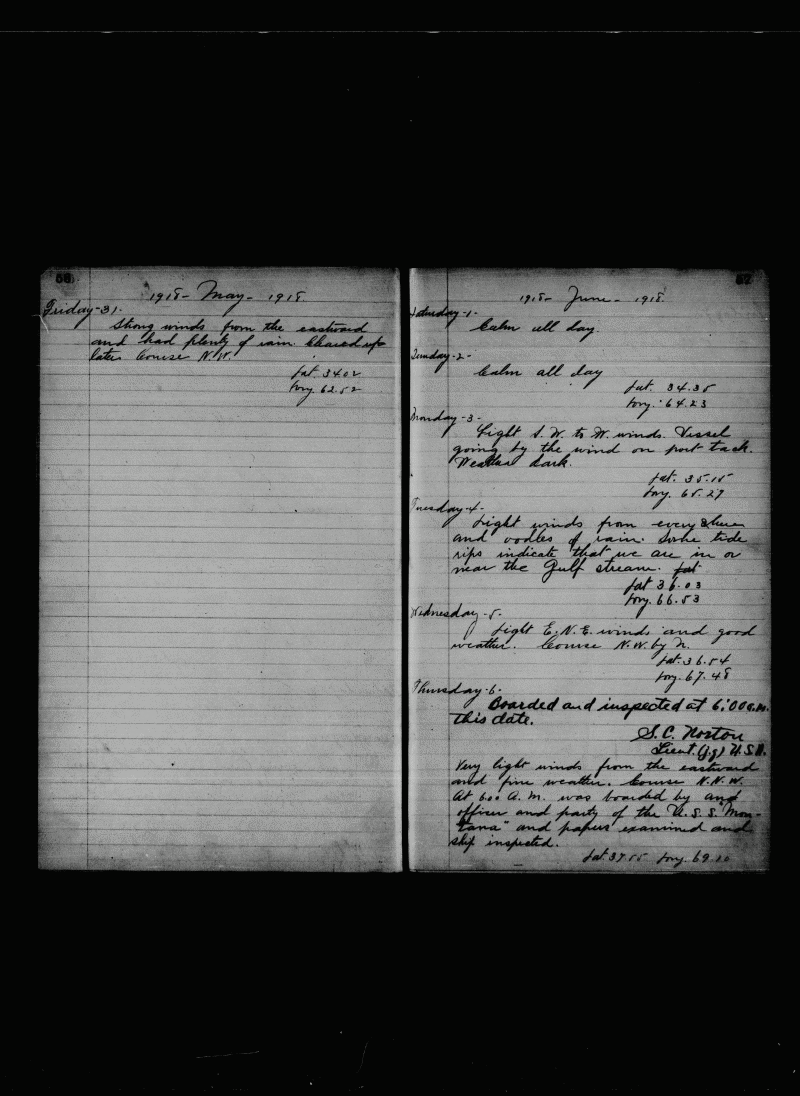 56.
1918- May- 1918
Friday-31-
Strong winds from the eastward
and had plenty of rain. Cleared up
later Course N.W.
Lat. 34.02
Long. 62.52
57
1918- June- 1918
Saturday-1-
Calm all day.
Sunday-2-
Calm all day
Lat. 34.35
Long. 64.23
Monday-3-
Light S.W. to W. winds. Vessel
going by the wind on port tack.
Weather dark.
Lat. 35.15
Long. 65.27
Tuesday-4-
Light winds from everywhere
and oodles of rain. Some tide
rips indicate that we are in or
near the Gulf stream. Lat
Lat 36.03
Long. 66.53
Wednesday-5-
Light E.N.E. winds and good
weather. Course N.W. by N.
Lat. 36.54
Long. 67.48
Thursday-6-
Boarded and inspected at 6:00 a.m.
this date.
S.C. Norton
Lieut. (j.g) U.S.N.
Very light winds from the eastward
and fine weather. Course N.N.W.
At 6.00 A.M. was boarded by and
officer and party of the U.S.S. "Mon-
tana" and papers examined and
ship inspected.
Lat. 37.55 Long. 69.10